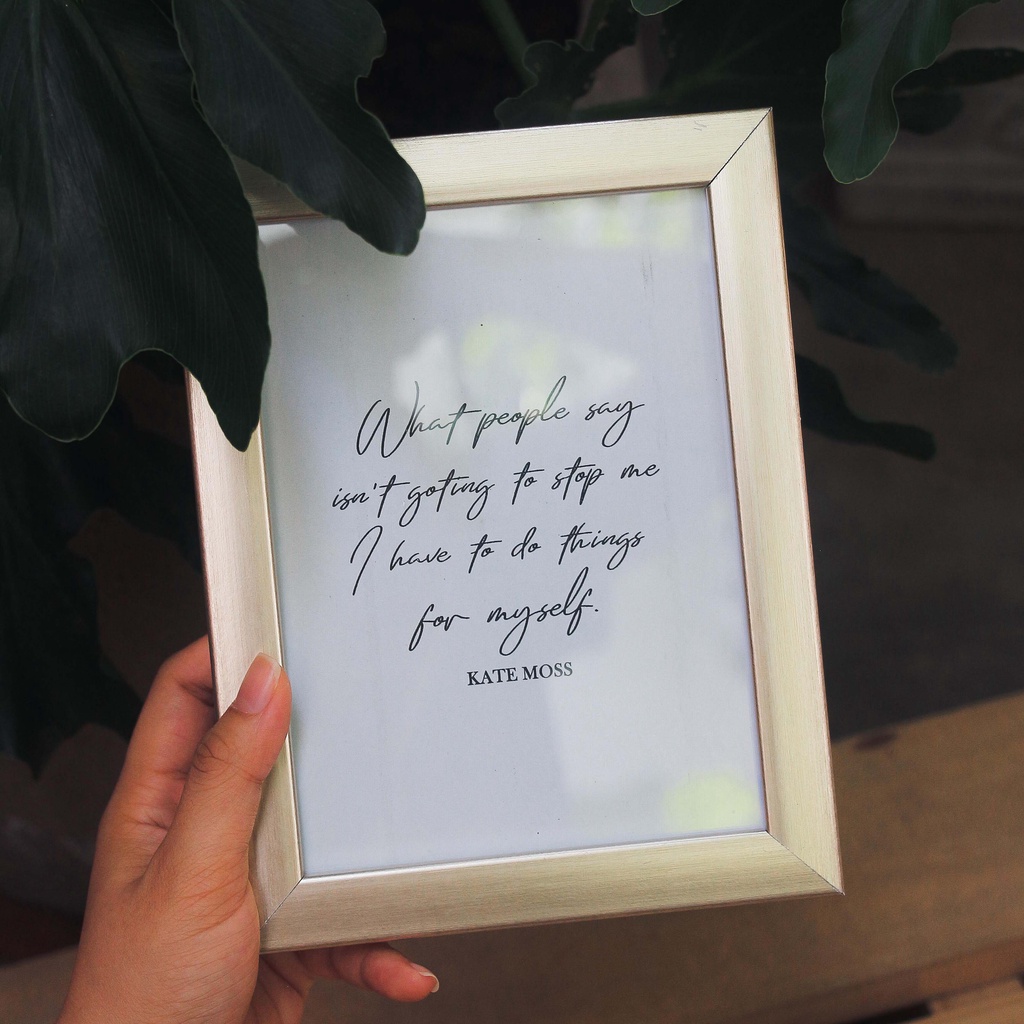 What people say
isn't goting to stop me
I have to do things
for myself.
KATE MOSS